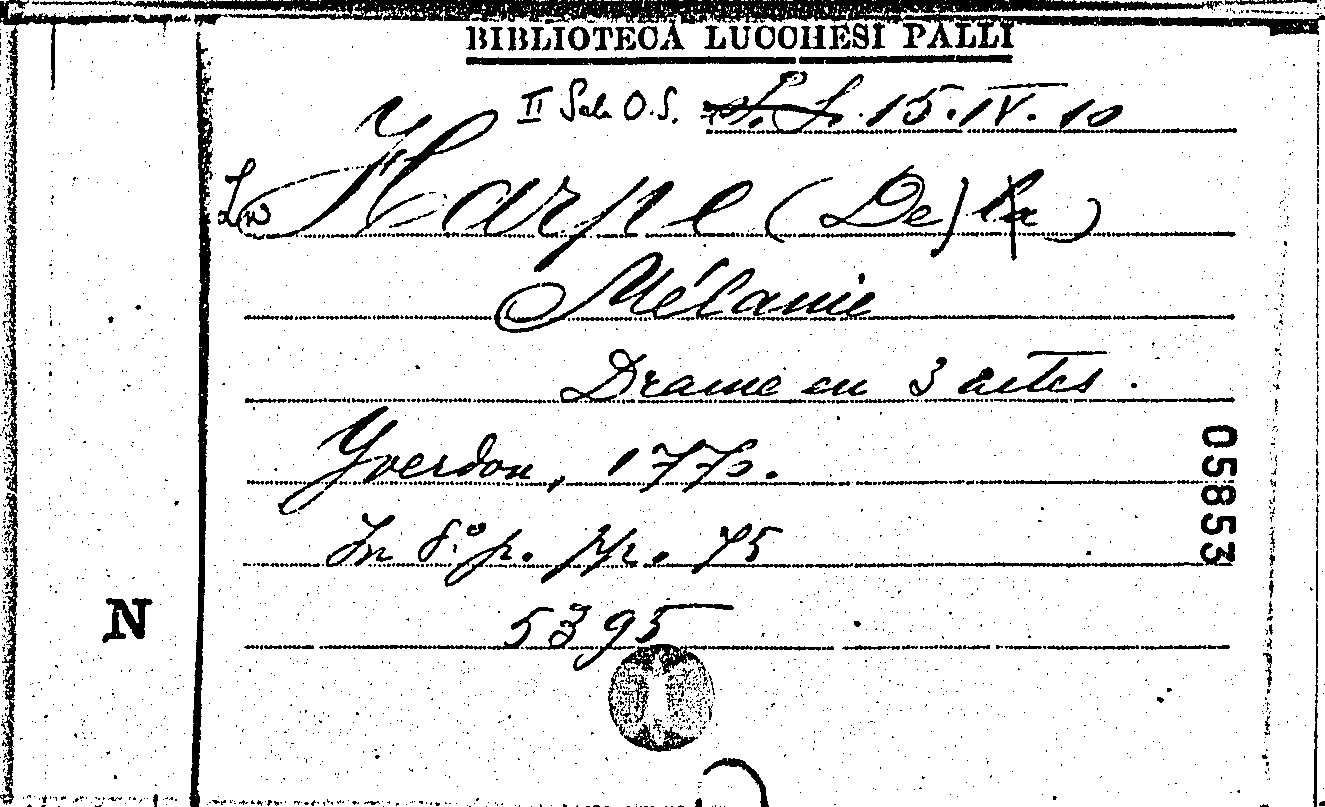 BIBLIOTECA LUCCHESI PALLI
II Sala O.S. L. L. 15.IV.10
La Harpe (De) la)
Mélanie
Drame en 3 actes.
Yverdon, 1770.
In 8.º p. pp. 75
5395
05853
N